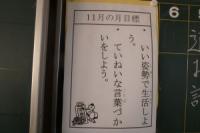 11月の月目標
• いい姿勢で生活しよ
う。
• ていねいな言葉づか
いをしよう。
6